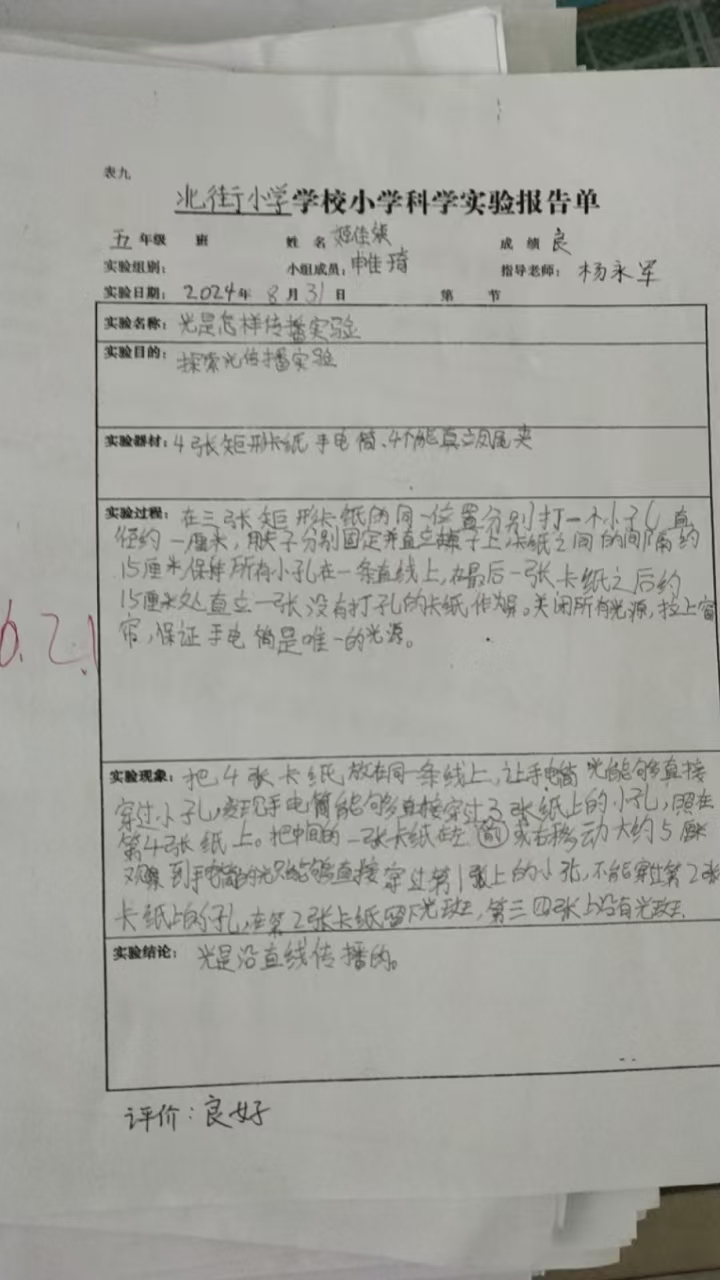 表九
北街小学学校小学科学实验报告单
五年级 班 姓名 姬佳 成绩 良
实验组别: 小组成员: 申佳琦 指导老师: 杨永军
实验日期: 2024年 8月31日 第 节
实验名称: 光是怎样传播实验
实验目的: 探索光传播实验
实验器材: 4张矩形卡纸 手电筒、4个能直立凤尾夹
实验过程: 在三张矩形卡纸的同一位置分别打一个小孔 直
径约一厘米, 用夹子分别固定并直立桌子上,卡纸之间的间隔约
15厘米,保持所有小孔在一条直线上,在最后一张卡纸之后约
15厘米处直立一张没有打孔的卡纸作为屏。关闭所有光源, 拉上窗
帘,保证手电筒是唯一的光源。
6.2.1
实验现象: 把4张卡纸放在同一条线上, 让手电筒光能够直接
穿过小孔,发现手电筒能够直接穿过3张纸上的小孔, 照在
第4张纸上。把中间的一张卡纸在左 或右移动大约5厘米
观察到手电筒的光只能够直接穿过第1张上的小孔, 不能穿过第2张
卡纸上的小孔,在第2张卡纸留下光斑, 第三四张上没有光斑.
实验结论: 光是沿直线传播的。
评价: 良好